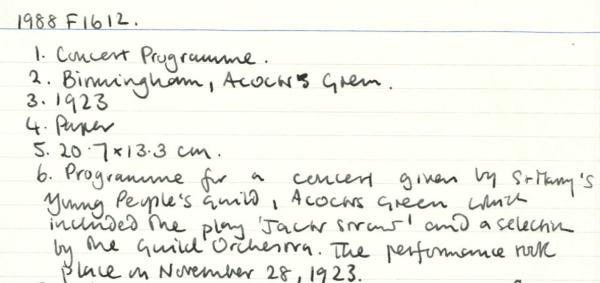 1988 F1612.
1. Concert Programme.
2. Birmingham, Acocks Green.
3. 1923
4. Paper
5. 20.7 x 13.3 cm.
6. Programme for a concert given by St Mary's
Young People's Guild, Acocks Green which
included the play 'Jack Straw' and a selection
by the Guild Orchestra. The performance took
place on November 28, 1923.